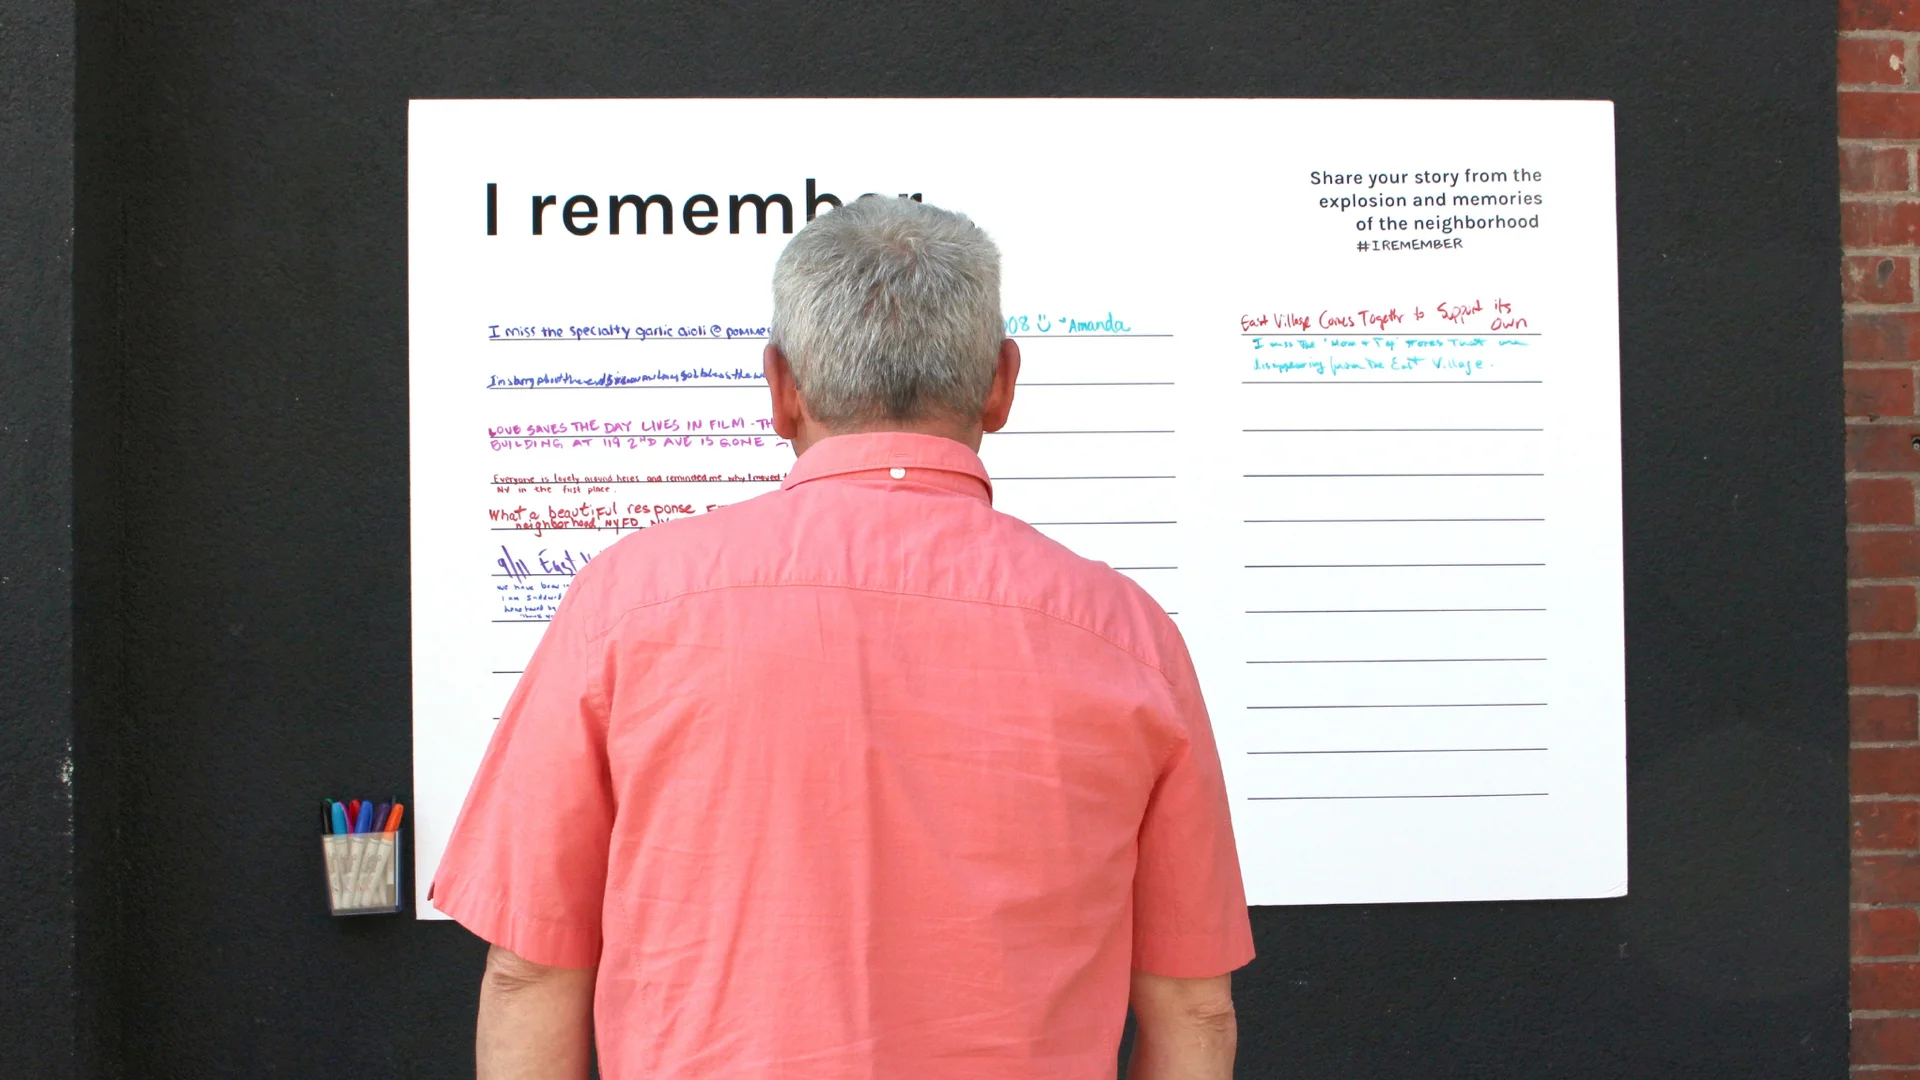 I remember
Share your story from the
explosion and memories
of the neighborhood
#IREMEMBER
I miss the specialty garlic aioli @ pommes
LOVE SAVES THE DAY LIVES IN FILM - TH
BUILDING AT 119 2ND AVE IS GONE
Everyone is lovely around heres and reminded me why I moved
NY in the first place.
What a beautiful response
neighborhood, NYFD,
9/11 East
we have been
I am
008 Amanda
East Village Comes Together to Support its
own
I miss The "Mom + Pop" stores That are
disappearing from The East Village.